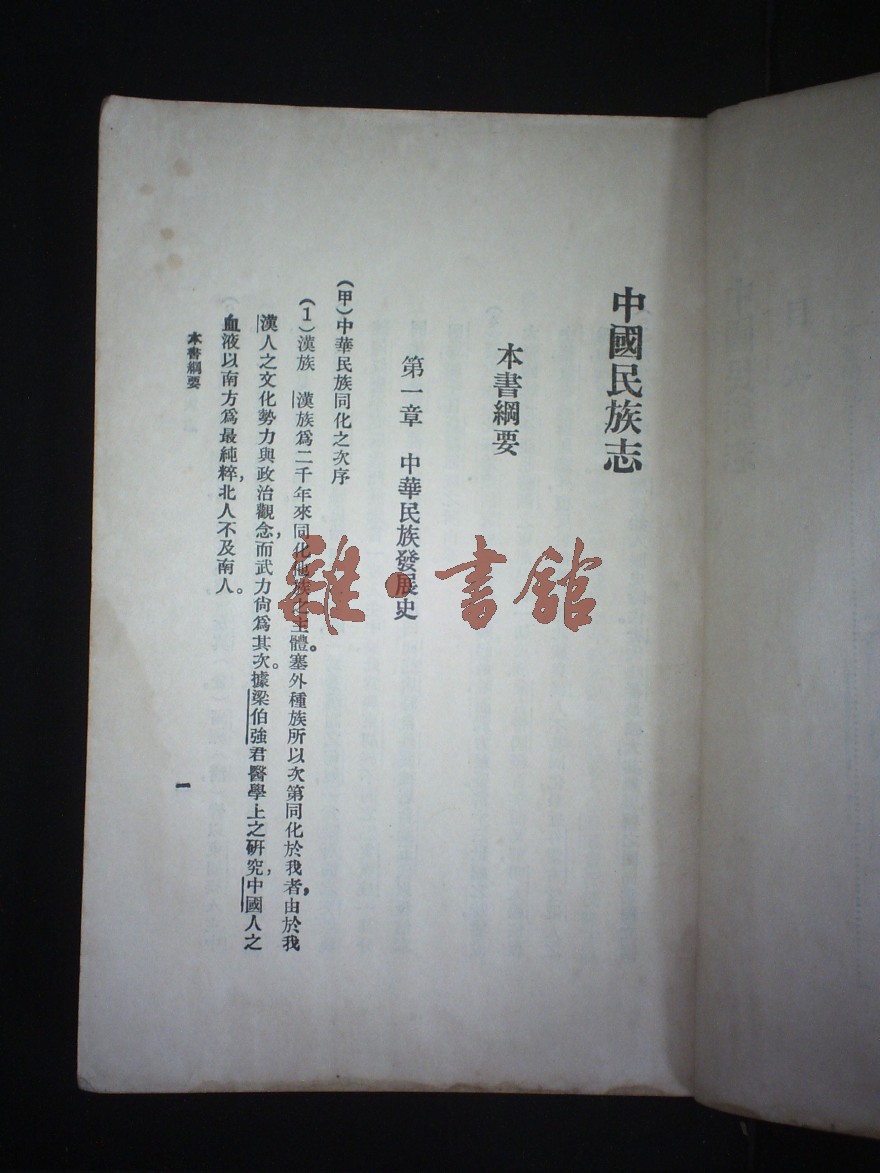 中國民族志
本書綱要
第一章　中華民族發展史
(甲)中華民族同化之次序
(1)漢族　漢族爲二千年來同化他族之主體。塞外種族所以次第同化於我者，由於我
漢人之文化勢力與政治觀念，而武力尙爲其次。據梁伯強君醫學上之研究，中國人之
血液以南方爲最純粹，北人不及南人。
本書綱要
一
雜·書館